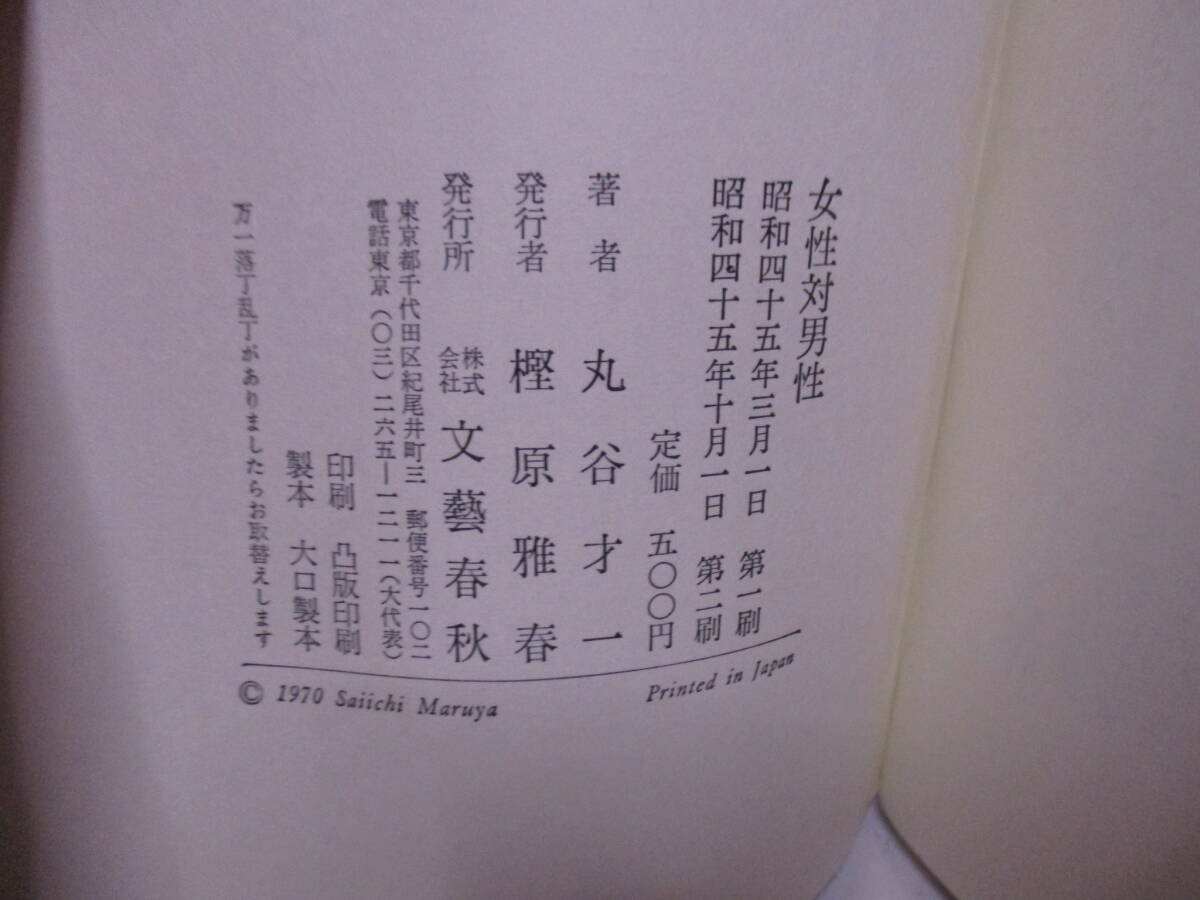 女性対男性
昭和四十五年三月一日 第一刷
昭和四十五年十月一日 第二刷
定価 五〇〇円
著者 丸谷才一
発行者 樫原雅春
発行所 株式会社 文藝春秋
東京都千代田区紀尾井町三 郵便番号一〇二
電話東京(〇三)二六五―一二一一(大代表)
印刷 凸版印刷
製本 大口製本
万一落丁乱丁がありましたらお取替えします
Printed in Japan
© 1970 Saiichi Maruya